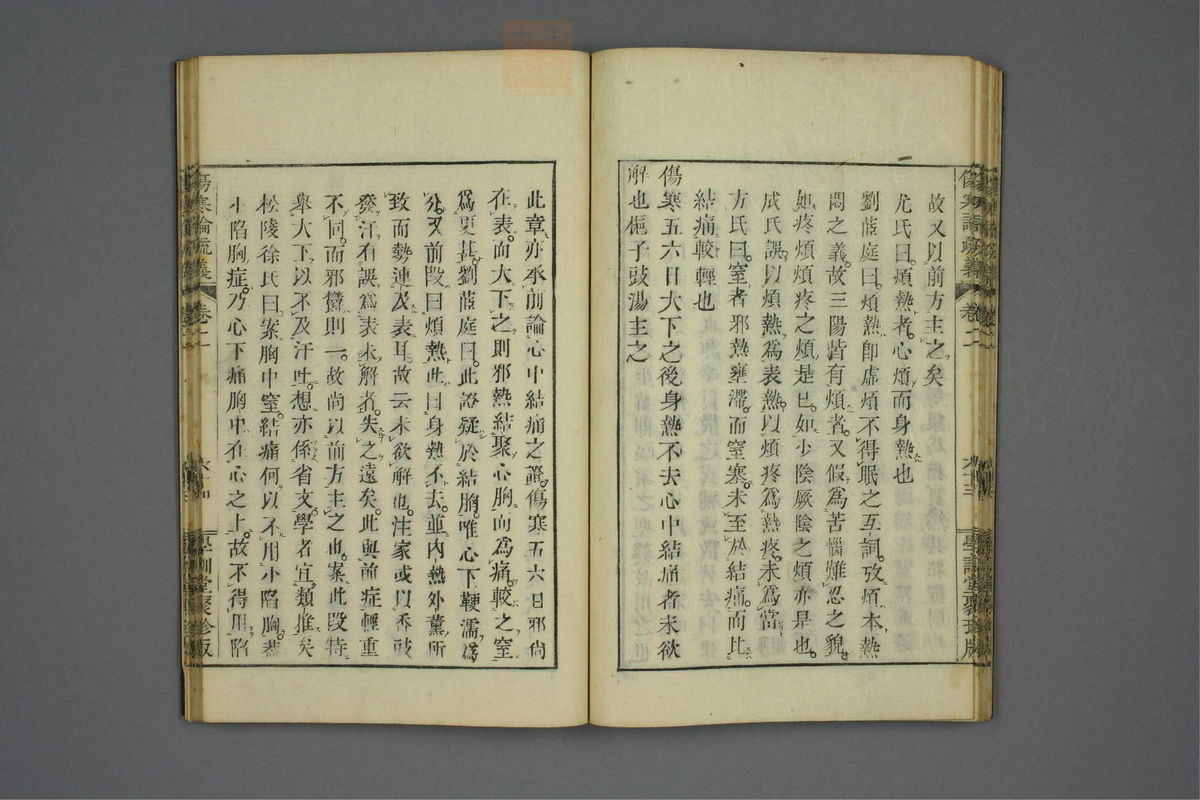 故又以前方主之矣
尤氏曰煩熱者心煩而身熱也
劉茝庭曰煩熱卽虛煩不得眠之互詞攷煩本熱
悶之義故三陽皆有煩者又假爲苦惱難忍之貌
如疼煩煩疼之煩是已如少陰厥陰之煩亦是也
成氏誤以煩熱爲表熱以煩疼爲熱疼未爲當
方氏曰窒者邪熱壅滯而窒塞未至於結痛而比
結痛較輕也
傷寒五六日大下之後身熱不去心中結痛者未欲
解也梔子豉湯主之
傷寒論疏義
卷二
六十三
學訓堂聚珍版
此章亦承前論心中結痛之證傷寒五六日邪尙
在表而大下之則邪熱結聚心胸而爲痛較之窒
爲更甚劉茝庭曰此證疑於結胸唯心下鞕濡爲
分又前段曰煩熱此曰身熱不去並內熱外薰所
致而勢連及表耳故云未欲解也注家或以香豉
發汗有誤爲表未解者失之遠矣此與前症輕重
不同而邪鬱則一故尙以前方主之也案此段特
擧大下以不及汗吐想亦係省文學者宜類推矣
松陵徐氏曰案胸中窒結痛何以不用小陷胸蓋
小陷胸症乃心下痛胸中在心之上故不得用陷
傷寒論疏義
卷二
六十四
學訓堂聚珍版